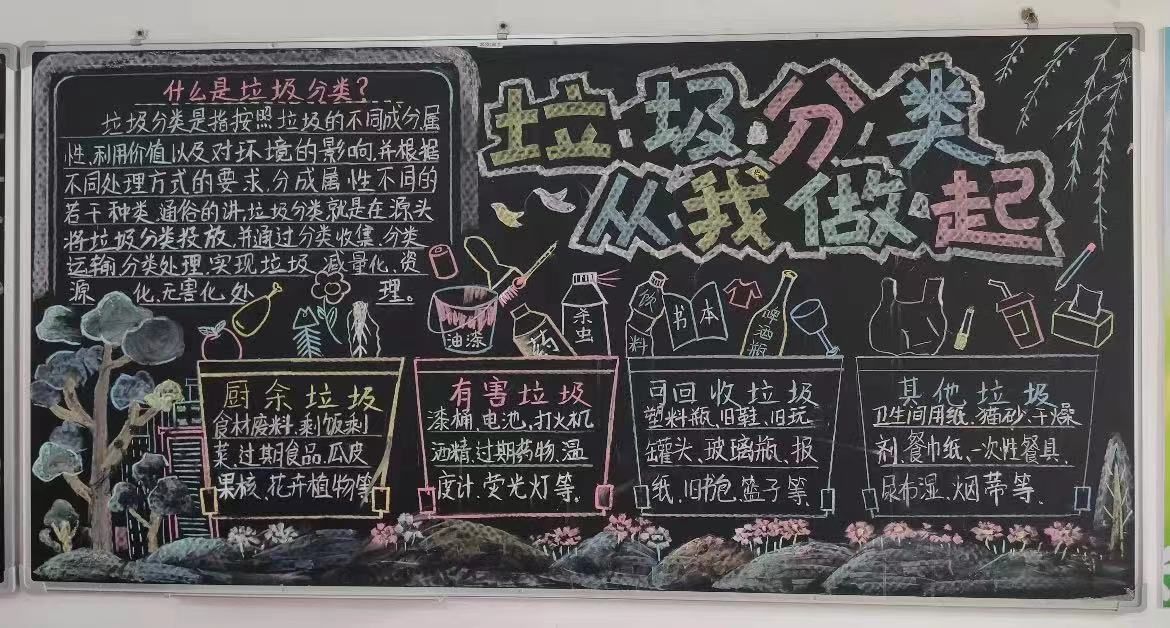 什么是垃圾分类?
垃圾分类是指按照垃圾的不同成分、属
性、利用价值以及对环境的影响,并根据
不同处理方式的要求,分成属性不同的
若干种类,通俗的讲,垃圾分类就是在源头
将垃圾分类投放,并通过分类收集、分类
运输、分类处理,实现垃圾减量化、资
源化、无害化处理。
垃圾·分类
从我做起
油漆
药
杀虫
饮料
书本
啤酒瓶
厨余垃圾
食材废料、剩饭剩
菜、过期食品、瓜皮
果核、花卉植物等
有害垃圾
漆桶、电池、打火机
酒精、过期药物、温
度计、荧光灯等、
可回收垃圾
塑料瓶、旧鞋、旧玩
罐头、玻璃瓶、报
纸、旧书包、篮子等、
其他垃圾
卫生间用纸、猫砂、干燥
剂、餐巾纸、一次性餐具、
尿布湿、烟蒂等、